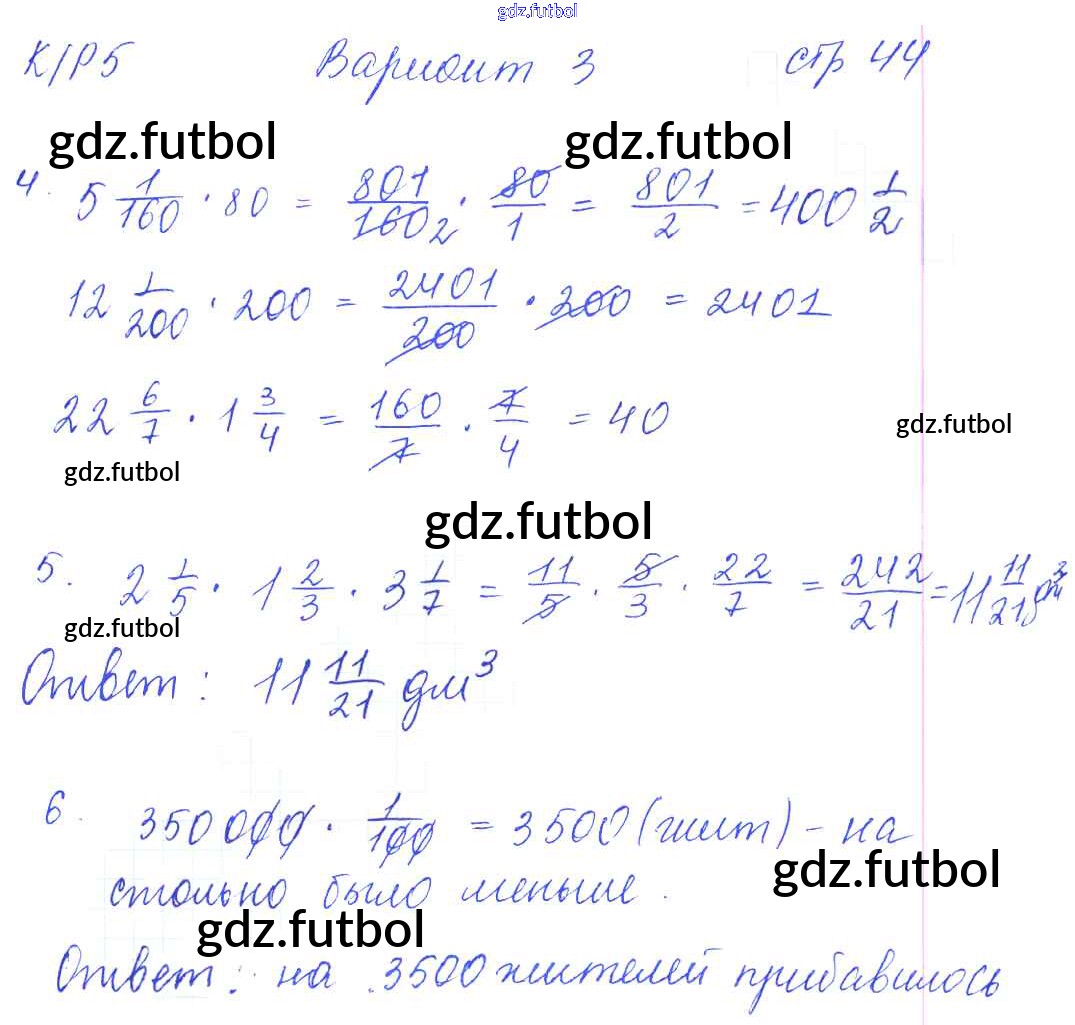 gdz.futbol
К/Р5 Вариант 3 стр 44
gdz.futbol gdz.futbol
4. 5 1/160 · 80 = 801/160 2 · 80/1 = 801/2 = 400 1/2
12 1/200 · 200 = 2401/200 · 200 = 2401
22 6/7 · 1 3/4 = 160/7 · 7/4 = 40
gdz.futbol
gdz.futbol
gdz.futbol
5. 2 1/5 · 1 2/3 · 3 1/7 = 11/5 · 5/3 · 22/7 = 242/21 = 11 11/21 дм³
gdz.futbol
Ответ: 11 11/21 дм³
6. 350000 · 1/100 = 3500 (жит) - на
gdz.futbol
столько было меньше.
gdz.futbol
Ответ: на 3500 жителей прибавилось